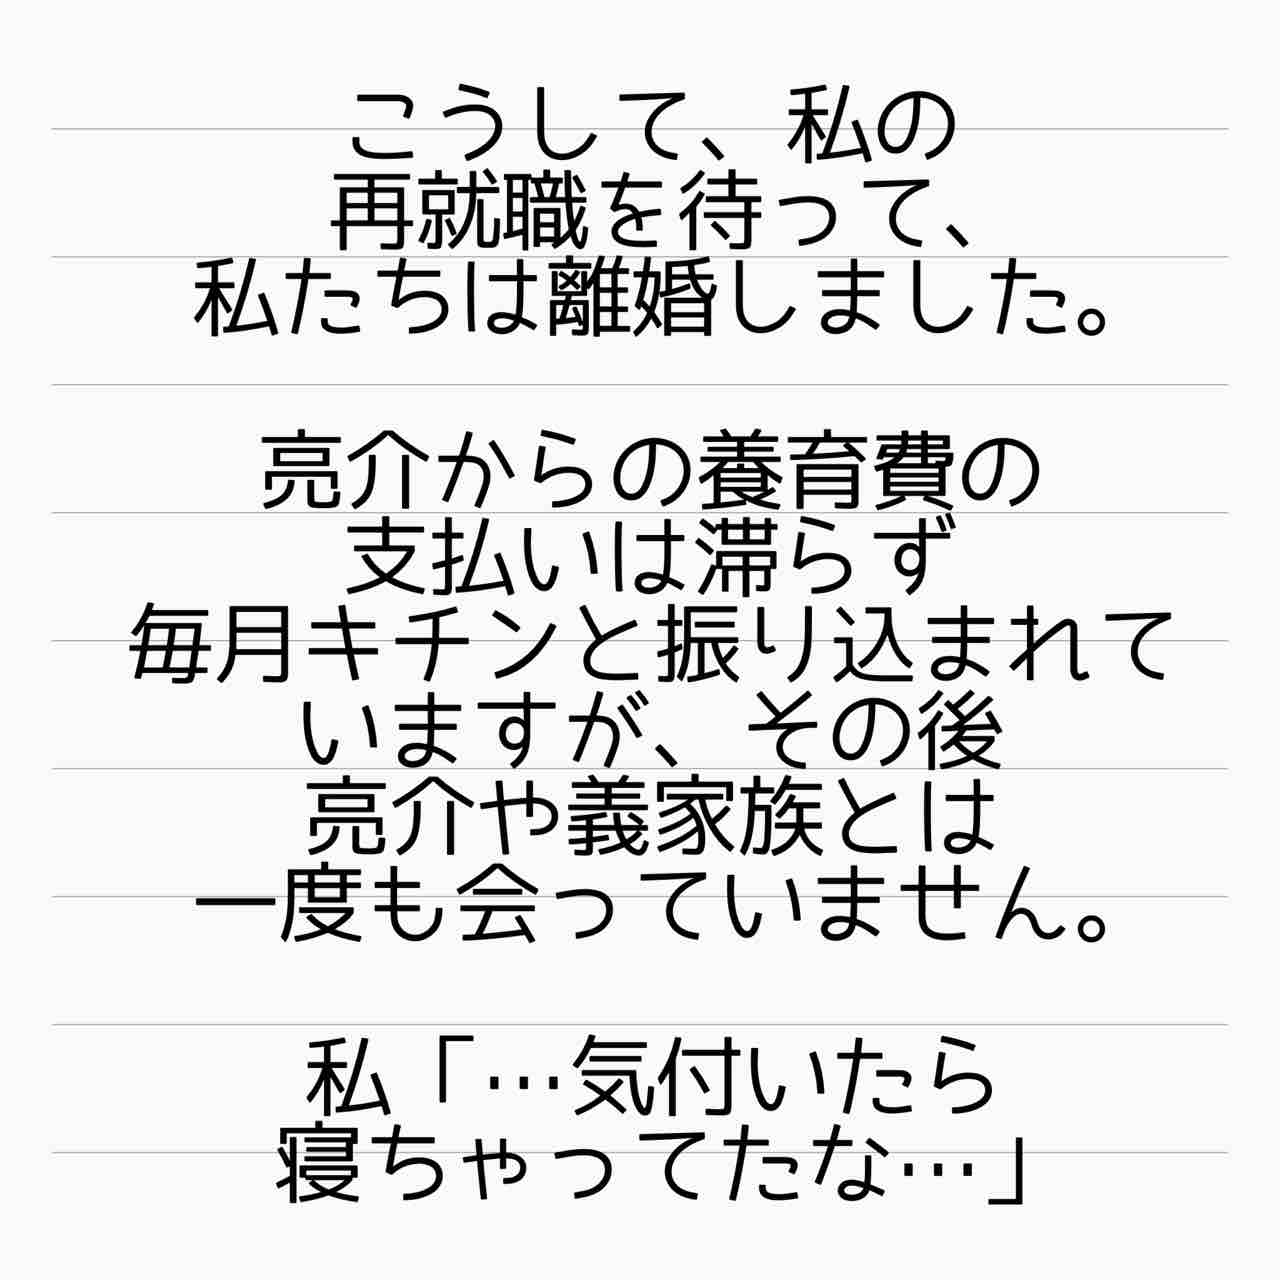 こうして、私の
再就職を待って、
私たちは離婚しました。
亮介からの養育費の
支払いは滞らず
毎月キチンと振り込まれて
いますが、その後
亮介や義家族とは
一度も会っていません。
私「…気付いたら
寝ちゃってたな…」